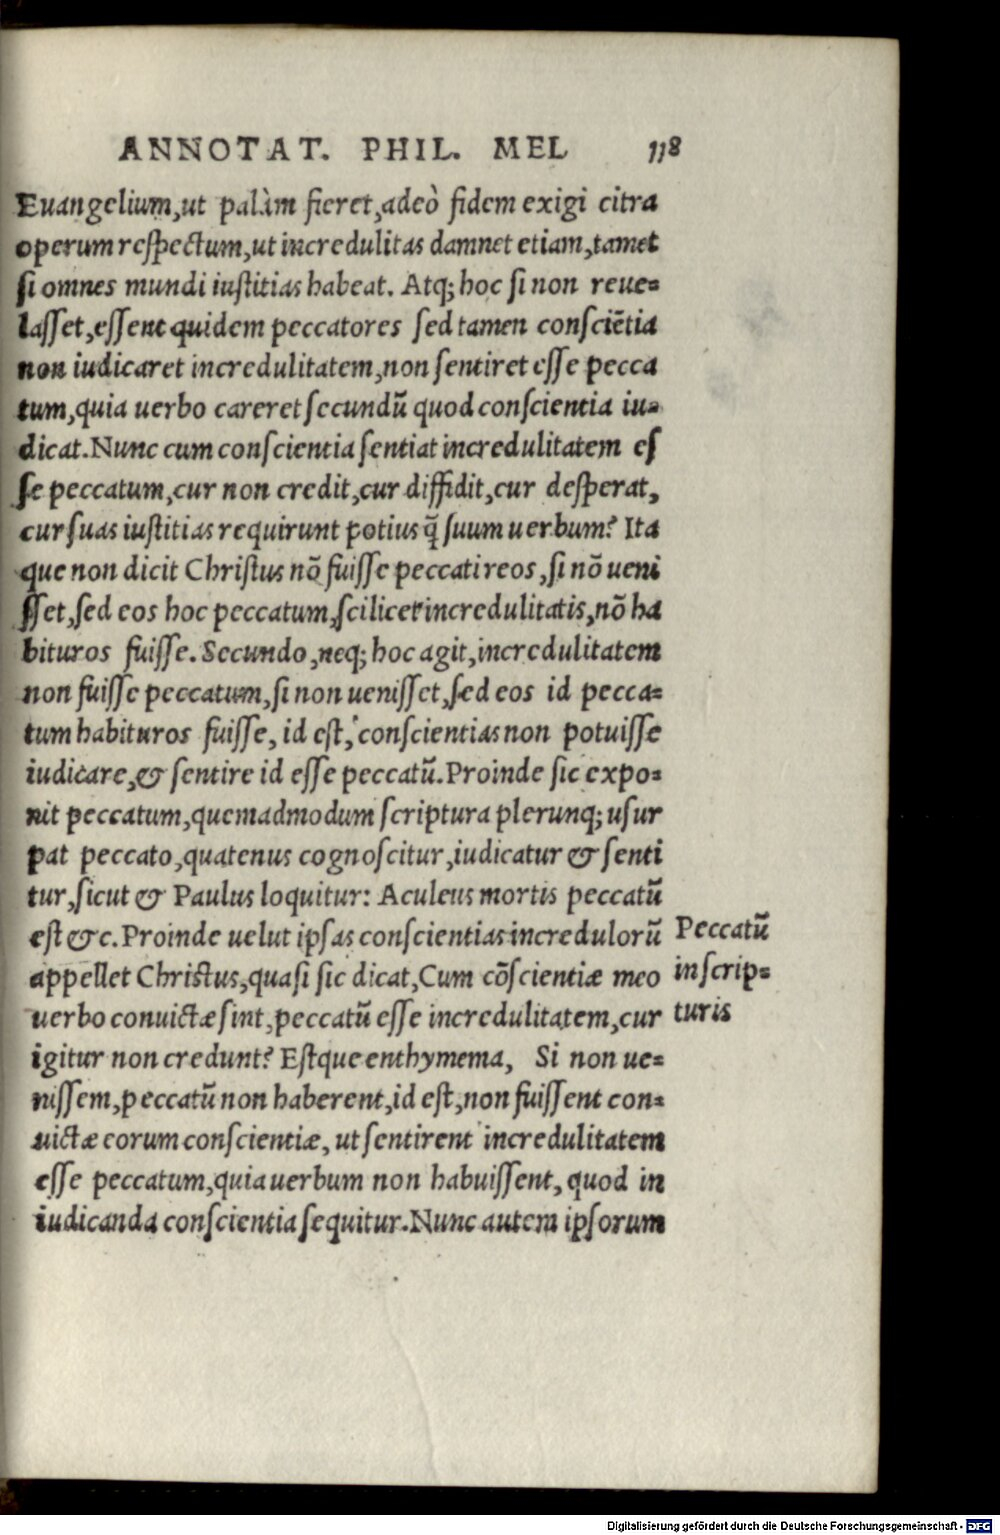 ANNOTAT. PHIL. MEL 118
Euangelium,ut palàm fieret,adeò fidem exigi citra
operum reſpectum,ut incredulitas damnet etiam,tamet
ſi omnes mundi iuſtitias habeat. Atq; hoc ſi non reue-
laſſet,eſſent quidem peccatores ſed tamen conſciẽtia
non iudicaret incredulitatem,non ſentiret eſſe pecca
tum,quia uerbo careret ſecundũ quod conſcientia iu-
dicat.Nunc cum conſcientia ſentiat incredulitatem eſ
ſe peccatum,cur non credit,cur diffidit,cur deſperat,
cur ſuas iuſtitias requirunt potius q̃ ſuum uerbum? Ita
que non dicit Chriſtus nõ fuiſſe peccati reos,ſi nõ ueni
ſſet,ſed eos hoc peccatum,ſcilicet incredulitatis,nõ ha
bituros fuiſſe.Secundo,neq; hoc agit,incredulitatem
non fuiſſe peccatum,ſi non ueniſſet,ſed eos id pecca-
tum habituros fuiſſe, id eſt, conſcientias non potuiſſe
iudicare,& ſentire id eſſe peccatũ.Proinde ſic expo-
nit peccatum,quemadmodum ſcriptura plerunq; uſur
pat peccato,quatenus cognoſcitur,iudicatur & ſenti
tur,ſicut & Paulus loquitur: Aculeus mortis peccatũ
eſt &c.Proinde uelut ipſas conſcientias incredulorũ
appellet Chriſtus,quaſi ſic dicat,Cum cõſcientiæ meo
uerbo conuictæ ſint,peccatũ eſſe incredulitatem,cur
igitur non credunt? Eſtque enthymema, Si non ue-
niſſem,peccatũ non haberent,id eſt,non fuiſſent con-
uictæ eorum conſcientiæ, ut ſentirent incredulitatem
eſſe peccatum,quia uerbum non habuiſſent, quod in
iudicanda conſcientia ſequitur.Nunc autem ipſorum
Peccatũ
in ſcrip-
turis
Digitalisierung gefördert durch die Deutsche Forschungsgemeinschaft - DFG